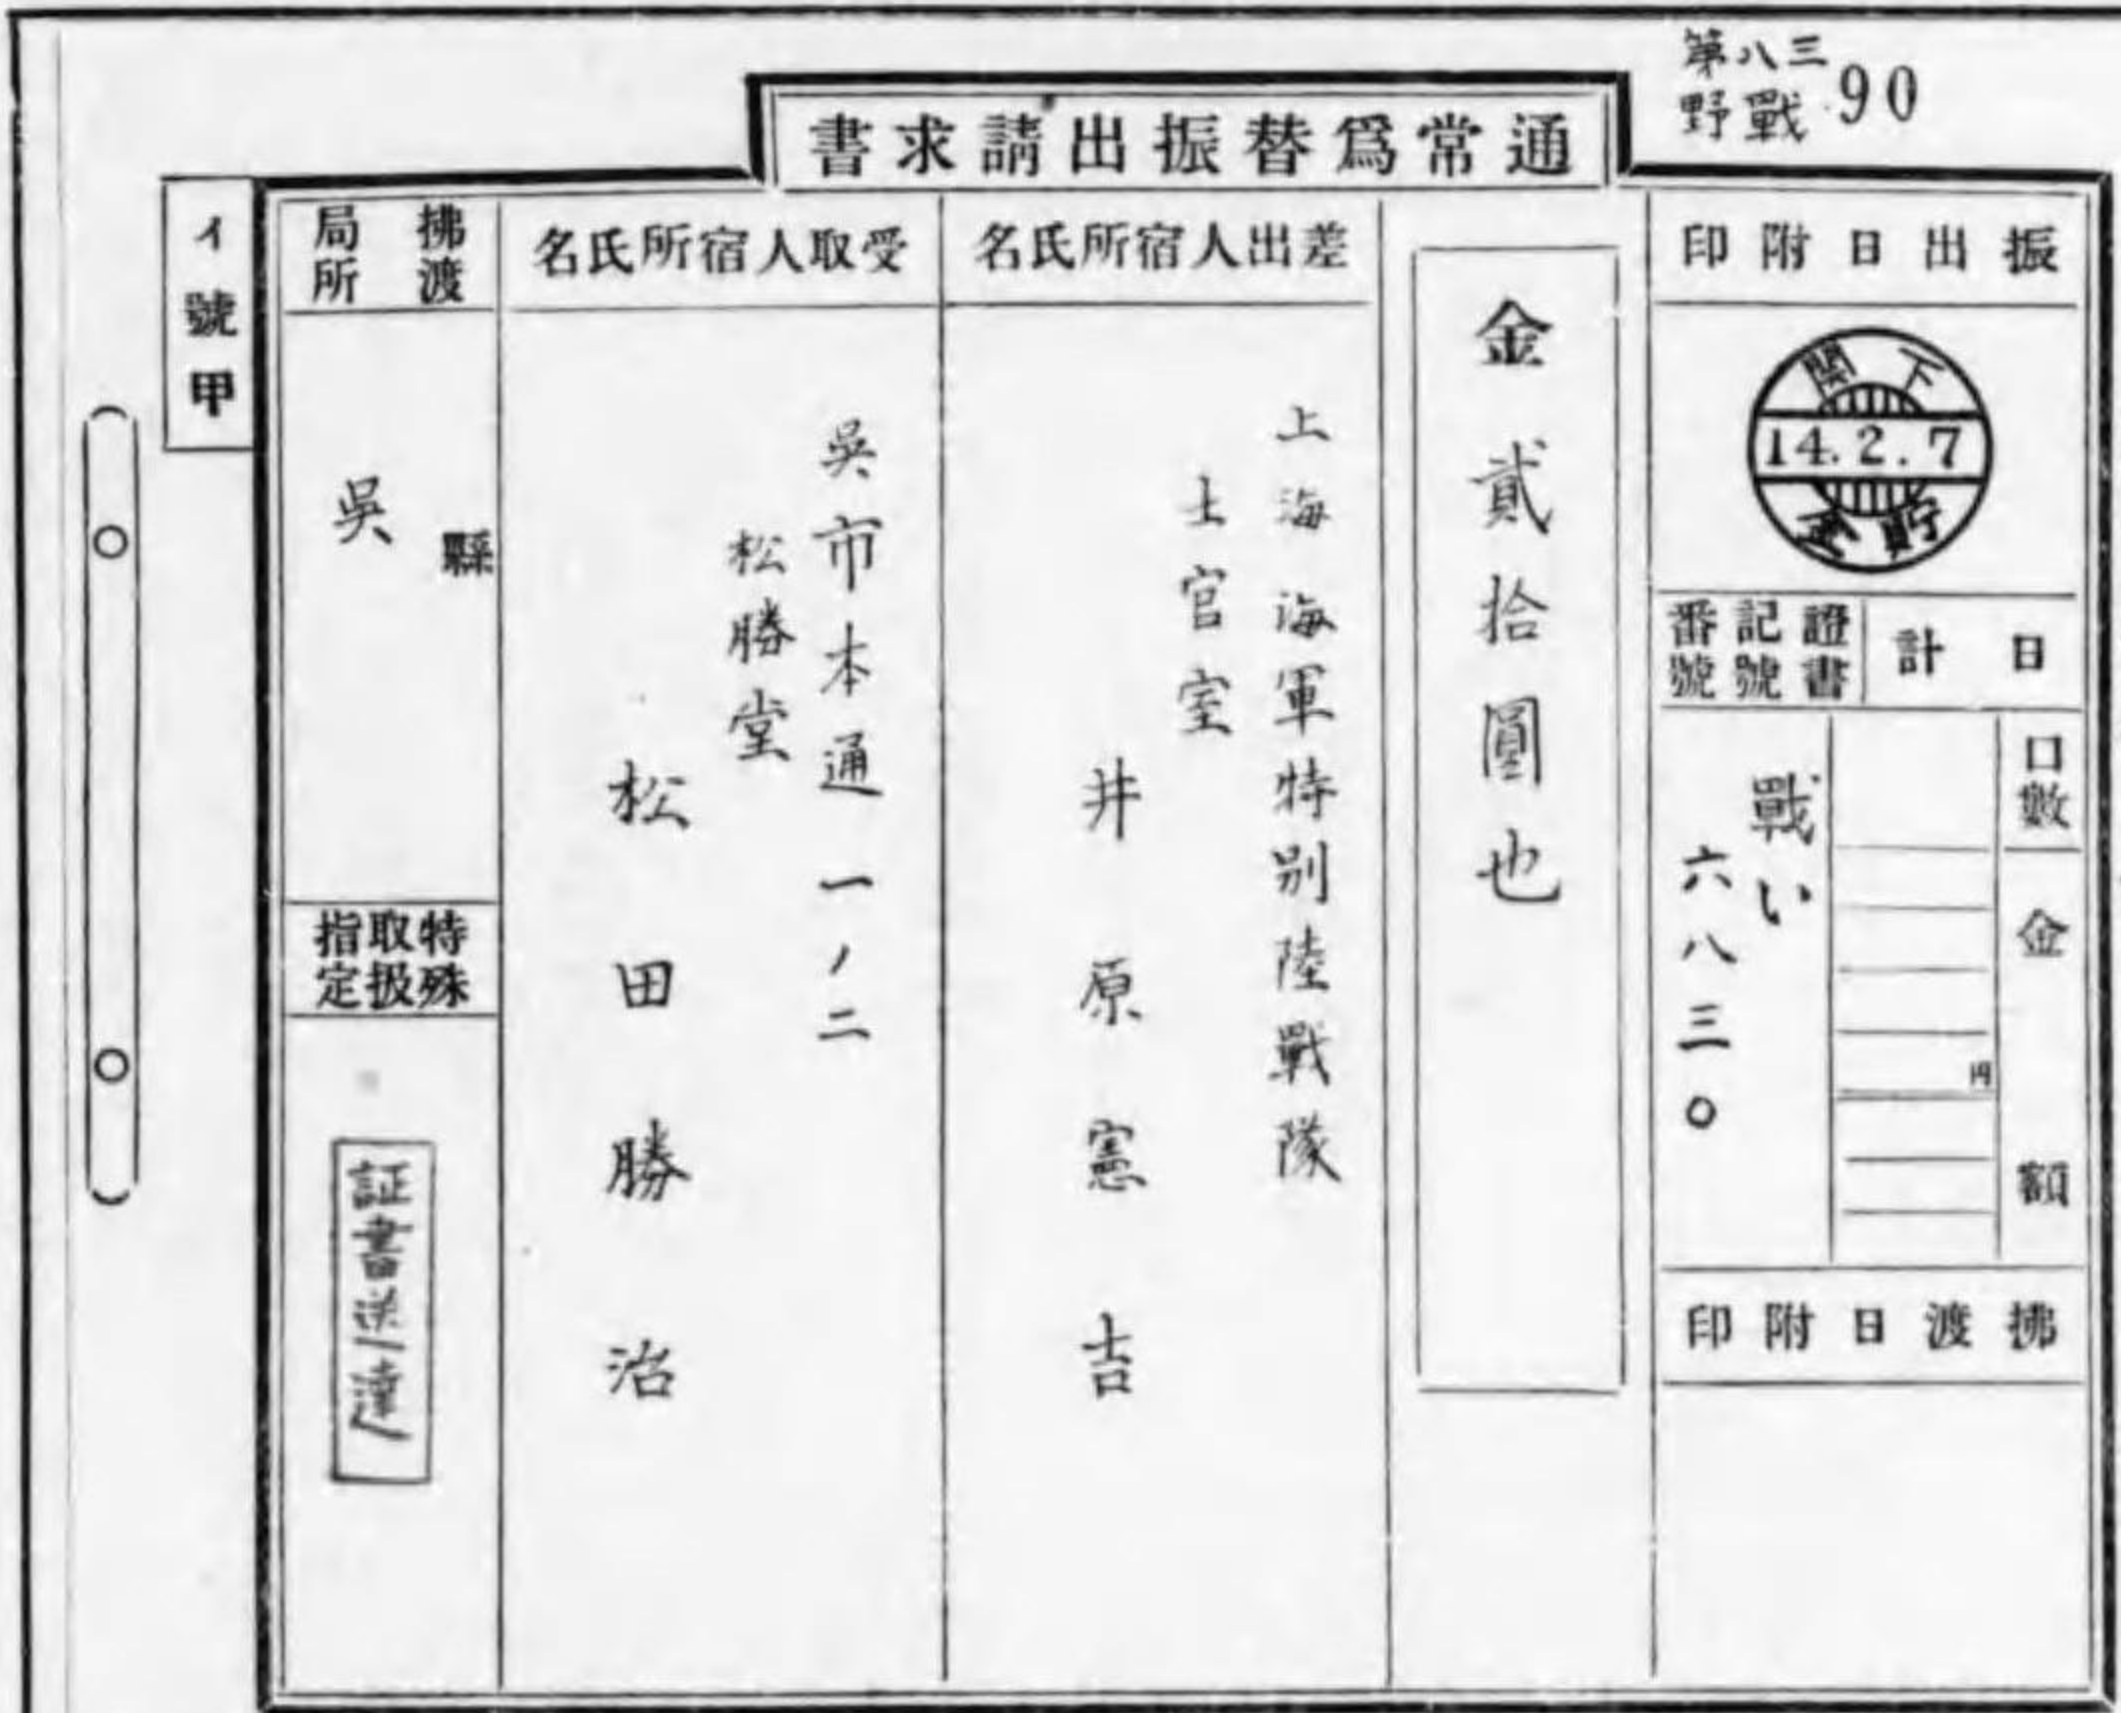 第八三
野戰
90
通常爲替振出請求書
振出日附印
下關
14.2.7
貯金
日計
證書記號番號
口數
金額
円
戰い
六八三〇
拂渡日附印
金貳拾圓也
差出人宿所氏名
上海海軍特別陸戰隊
士官室
井原憲吉
受取人宿所氏名
吳市本通一ノ二
松勝堂
松田勝治
拂渡局所
縣
吳
特殊取扱指定
証書送達
イ號甲